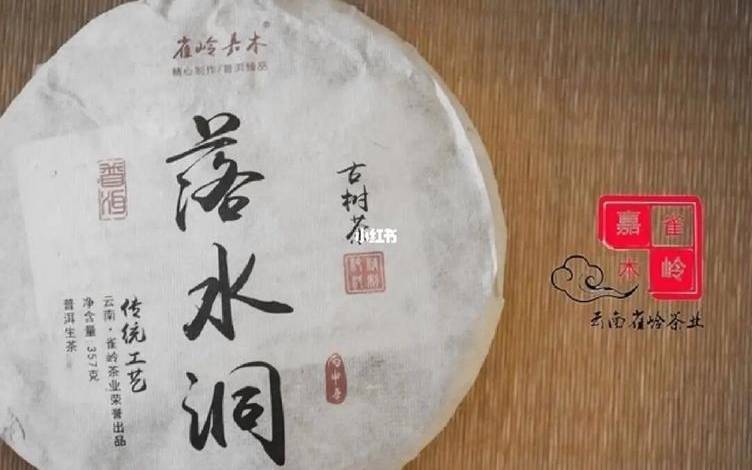 雀岭嘉木®
精心制作/普洱臻品
落水洞
古树茶
小红书
普洱
传统工艺
云南·雀岭茶业荣誉出品
净含量:357克
普洱生茶
丙申年
雀岭
嘉木
云南雀岭茶业